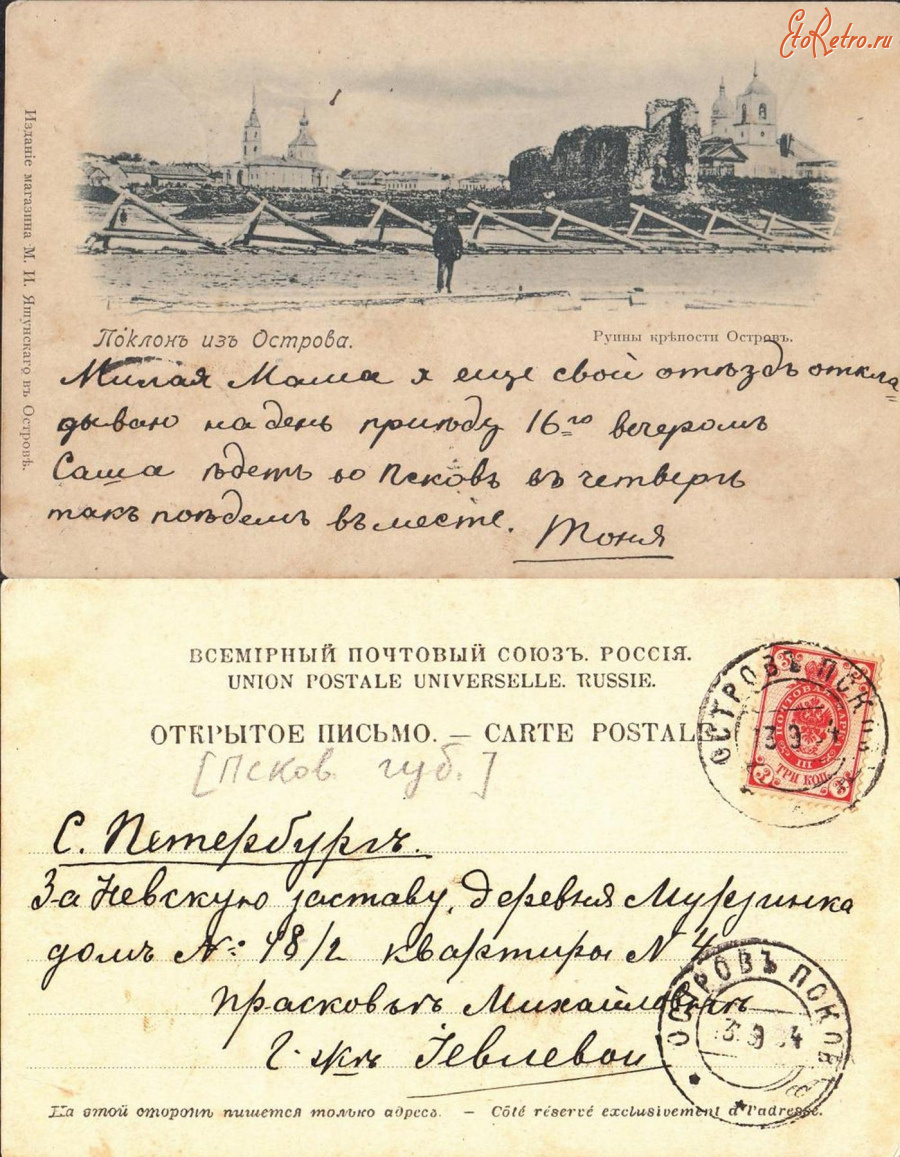 EtoRetro.ru
Изданіе магазина М. И. Яшунскаго въ Островѣ.
Поклонъ изъ Острова.
Руины крѣпости Островъ.
Милая Мама я еще свой отъѣздъ откла=
дываю на день пріѣду 16го вечеромъ
Саша ѣдетъ во Псковъ въ четвергъ
такъ поѣдемъ въместе.
Тоня
ВСЕМІРНЫЙ ПОЧТОВЫЙ СОЮЗЪ. РОССІЯ.
UNION POSTALE UNIVERSELLE. RUSSIE.
ОТКРЫТОЕ ПИСЬМО. — CARTE POSTALE
[Псков. губ.]
ОСТРОВЪ ПСКОВ
ПОЧТОВАЯ МАРКА
3
ТРИ КОП.
С. Петербургъ.
За Невскую заставу, деревня Мурзинка
домъ №: 18/2 квартиры N 4
Прасковьѣ Михайловнѣ
Г-жѣ Іевлевой
ОСТРОВЪ ПСКОВ
На этой сторонѣ пишется только адресъ. — Côté réservé exclusivement à l'adresse.